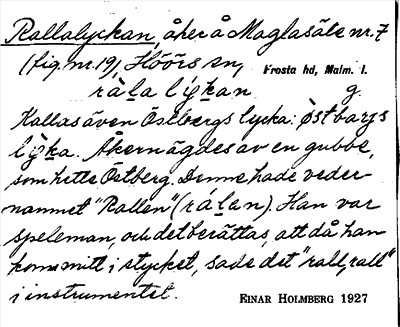 Rallalyckan, åker å Maglasäte nr. 7
(fig. nr. 19), Höörs sn, Frosta hd, Malm. l.
ràla lỳkan g.
Kallas även Östbergs lycka: östbarjs
lỳka. Åkern ägdes av en gubbe,
som hette Östberg. Denne hade veder-
namnet "Rallen" (rálan). Han var
speleman, och det berättas, att då han
kom mitt i stycket, sade det "rall, rall"
i instrumentet.
EINAR HOLMBERG 1927